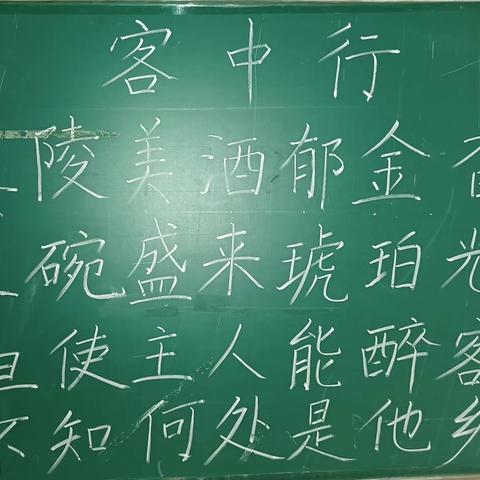 客中行
陵美酒郁金
碗盛来琥珀光
但使主人能醉客
不知何处是他乡